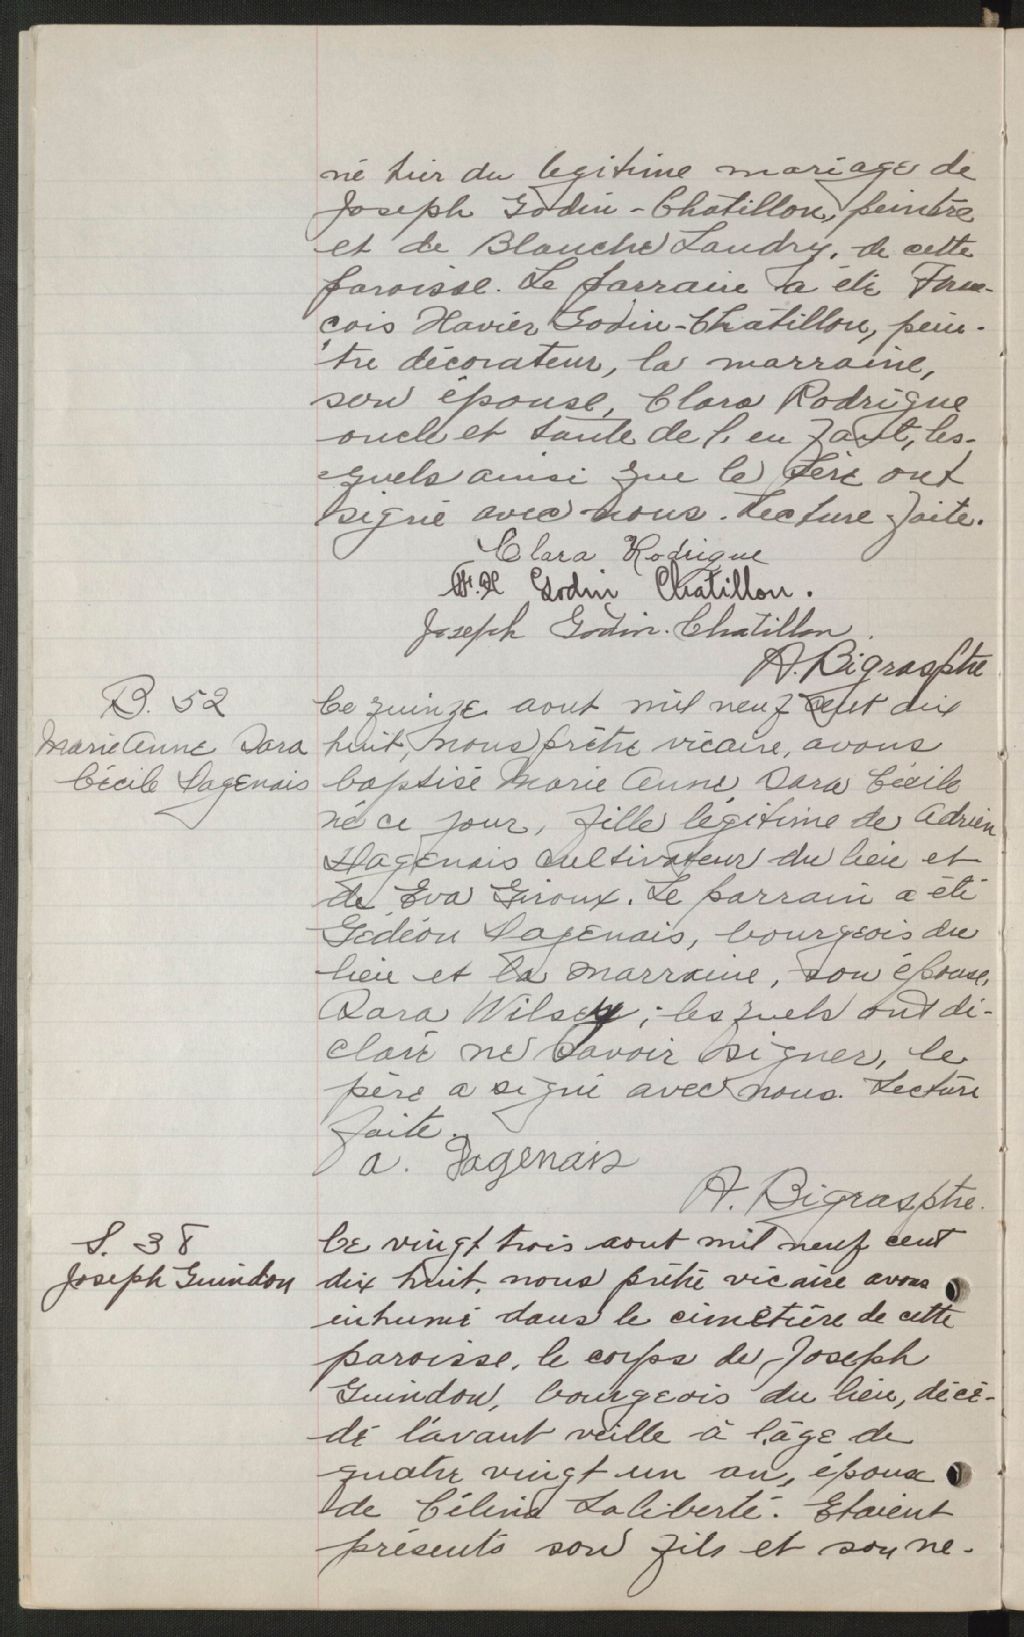 né hier du legitime mariage de
Joseph Godin-Chatillon, peintre
et de Blanche Landry, de cette
paroisse. Le parrain a été Fran-
çois Xavier Godin-Chatillon, pein-
tre décorateur, la marraine,
son épouse, Clara Rodrigue
oncle et tante de l'enfant, les-
quels ainsi que le père ont
signé avec nous. Lecture faite.
Clara Rodrigue
F. X Godin Chatillon.
Joseph Godin-Chatillon.
A. Bigras ptre
B. 52
Marie Anne Sara
Cécile Dagenais
Ce quinze aout mil neuf cent dix
huit, nous prêtre vicaire, avons
baptisé Marie Anne Sara Cécile
né ce jour, fille légitime de Adrien
Dagenais cultivateur du lieu et
de Eva Giroux. Le parrain a été
Gédéon Dagenais, bourgeois du
lieu et la marraine, son épouse,
Sara Wilson; lesquels ont dé-
claré ne savoir signer, le
père a signé avec nous. Lecture
faite.
A. Dagenais
A. Bigras ptre.
S. 38
Joseph Guindon
Ce vingt trois aout mil neuf cent
dix huit, nous prêtre vicaire avons
inhumé dans le cimetière de cette
paroisse, le corps de Joseph
Guindon, bourgeois du lieu, décé-
dé l'avant veille à l'âge de
quatre vingt un an, époux
de Célina Laliberté. Etaient
présents son fils et son ne-